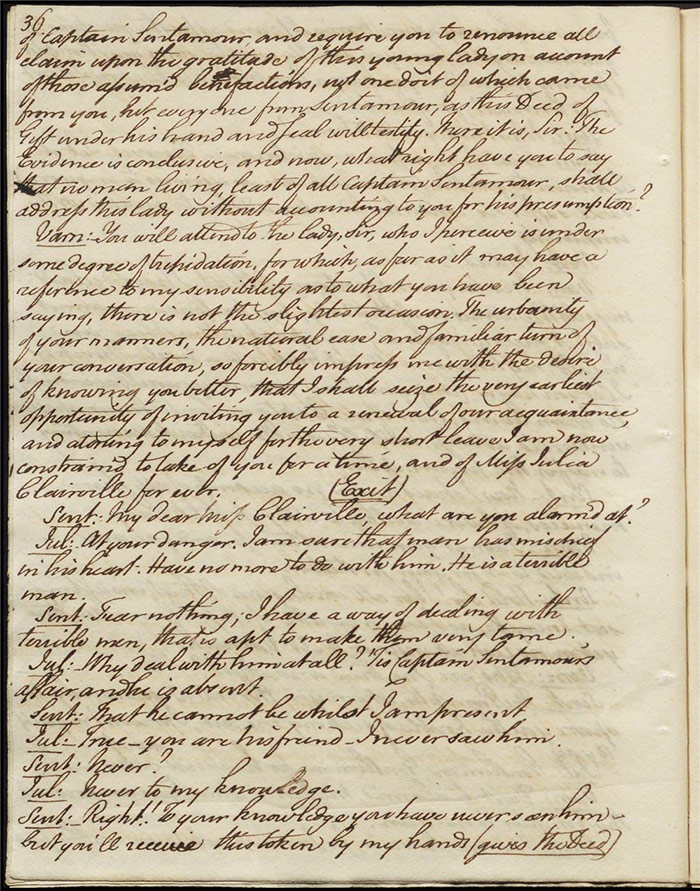 36
of Captain Sentamour, and require you to renounce all
claim upon the gratitude of this young lady on account
of those assum'd benefactions, not one doit of which came
from you, but every one from Sentamour, as this Deed of
Gift under his hand and seal will testify. Here it is, Sir! The
Evidence is conclusive, and now, what right have you to say
that no man living, least of all Captain Sentamour, shall
address this lady without accounting to you for his presumption?
Varn: You will attend to the lady, Sir, who I perceive is under
some degree of trepidation, for which, as far as it may have a
reference to my sensibility as to what you have been
saying, there is not the slightest occasion. The urbanity
of your manners, the natural ease and familiar turn of
your conversation, so forcibly impress me with the desire
of knowing you better, that I shall seize the very earliest
opportunity of inviting you to a renewal of our acquaintance,
and atoning to myself for the very short leave I am now
constrain'd to take of you for a time, and of Miss Julia
Clairville for ever. (Exit)
Sent: My dear Miss Clairville, what are you alarm'd at?
Jul: At your danger. I am sure that man has mischief
in his heart. Have no more to do with him. He is a terrible
man.
Sent: Fear nothing; I have a way of dealing with
terrible men, that is apt to make them very tame.
Jul: Why deal with him at all? 'Tis Captain Sentamour's
affair, and he is absent.
Sent: That he cannot be whilst I am present
Jul: True - you are his friend - I never saw him.
Sent: Never?
Jul: Never to my knowledge.
Sent: Right! To your knowledge you have never seen him -
but you'll receive this token by my hands (gives the Deed)